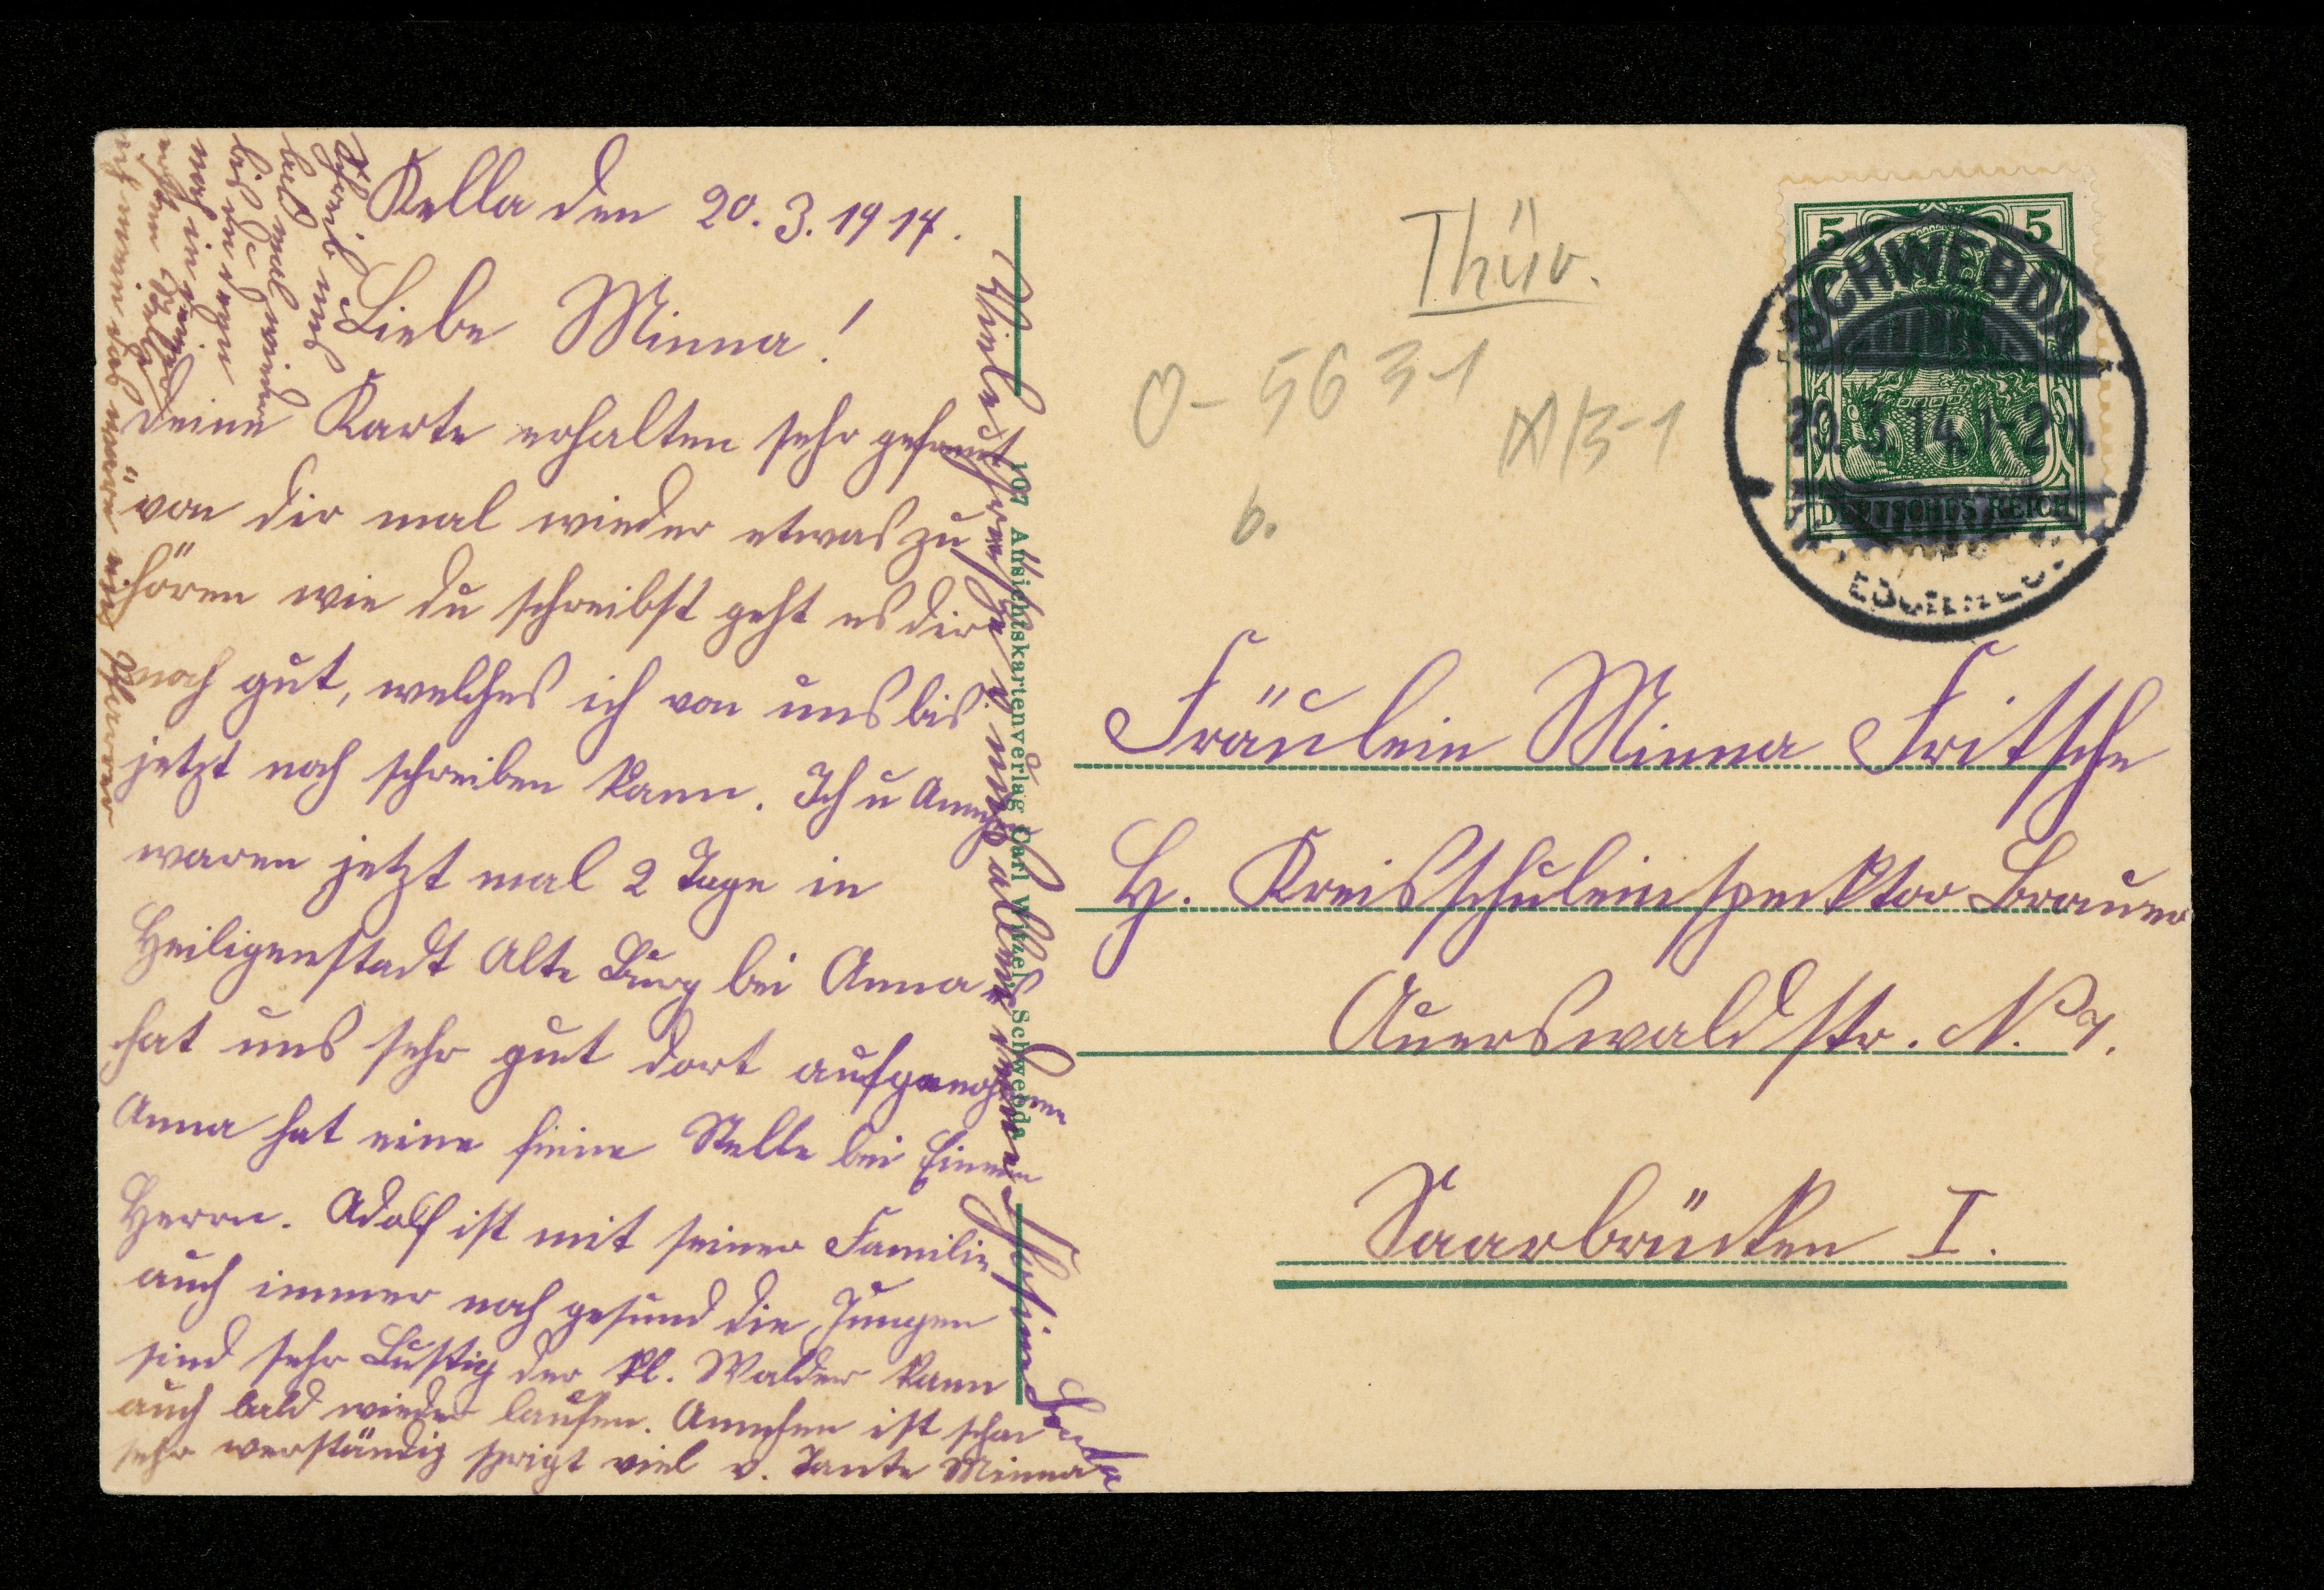 Kella den 20.3.1914.
Liebe Minna!
deine Karte erhalten sehr gefreut
von dir mal wieder etwas zu
hören wie du schreibst geht es dir
noch gut, welches ich von uns bis
jetzt noch schreiben kann. Ich u Annchen
waren jetzt mal 2 Tage in
Heiligenstadt Alte Burg bei Anna es
hat uns sehr gut dort aufgenohmen
Anna hat eine feine Stelle bei Einem
Herrn. Adolf ist mit seiner Familie
auch immer noch gesund die Jungen
sind sehr Lustig der kl. Walder kann
auch bald wieder laufen. Annchen ist schon
sehr verständig sprigt viel v. Tante Minna
Schreib uns
bald mal wieder
bis du
noch in
Kella
Viele
allen
107 Ansichtskartenverlag Carl Witzel, Schwebda
Thür.
O-5631
b.
5 5
DEUTSCHES REICH
SCHWEBDA
20.3.14.1-2N.
Fräulein Minna Fritsche
H. Kreisschuleinspektor Brauer
Auerswaldstr. N. 7.
Saarbrücken I.